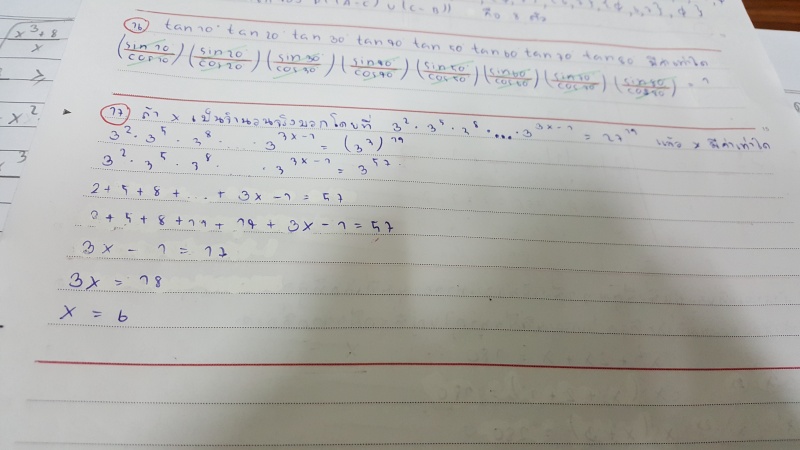 x³+8
x
x²
x³
76 tan 10° tan 20 tan 30 tan 40 tan 50 tan 60 tan 70 tan 80 มีค่าเท่าใด
(sin 10/cos 10) (sin 20/cos 20) (sin 30/cos 30) (sin 40/cos 40) (sin 50/cos 50) (sin 60/cos 60)
77 ถ้า x เป็นจำนวนจริงบวกโดยที่ 3² · 3⁵ · 3⁸ · .... · 3³ˣ⁻¹ = 27¹⁹ แล้ว x มีค่าเท่าใด
3² · 3⁵ · 3⁸ . . . . 3³ˣ⁻¹ = (3³)¹⁹
3² · 3⁵ · 3⁸ . . . . · 3³ˣ⁻¹ = 3⁵⁷
2 + 5 + 8 + . . + 3x - 1 = 57
2 + 5 + 8 + 11 + 14 + 3x - 1 = 57
3x - 1 = 17
3x = 18
x = 6